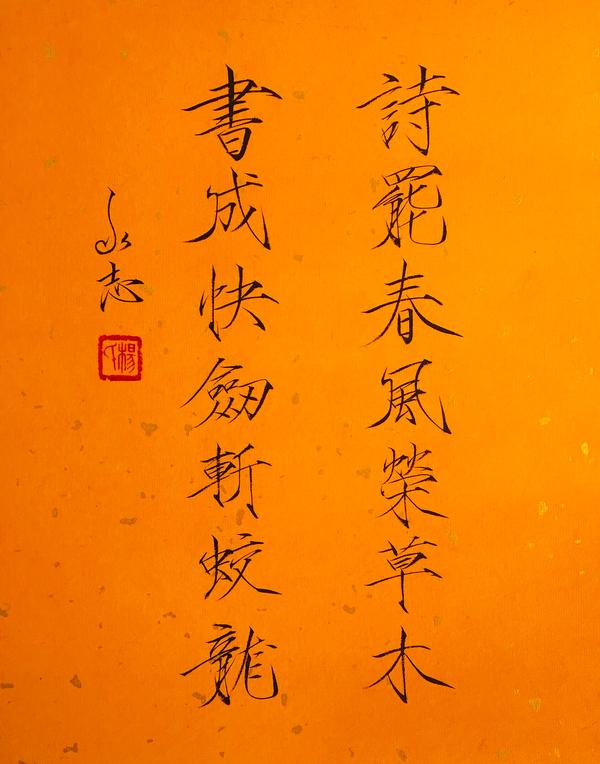 詩罷春風榮草木
書成快劒斬蛟龍
永志